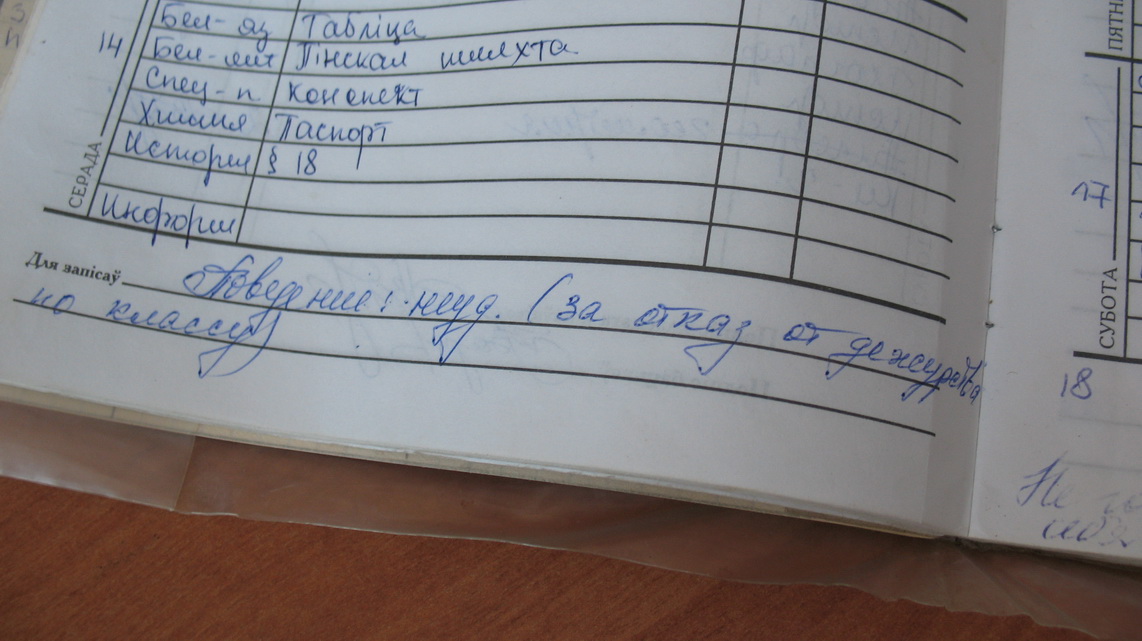 Бел-яз Табліца
14 Бел-лит Пінская шляхта
Спец-п конспект
Химия Паспорт
История § 18
СЕРАДА
Информ
Для запісаў Поведение: неуд. (за отказ от дежурства
по классу)
ПЯТНІ
17
СУБОТА
18
Не
себя